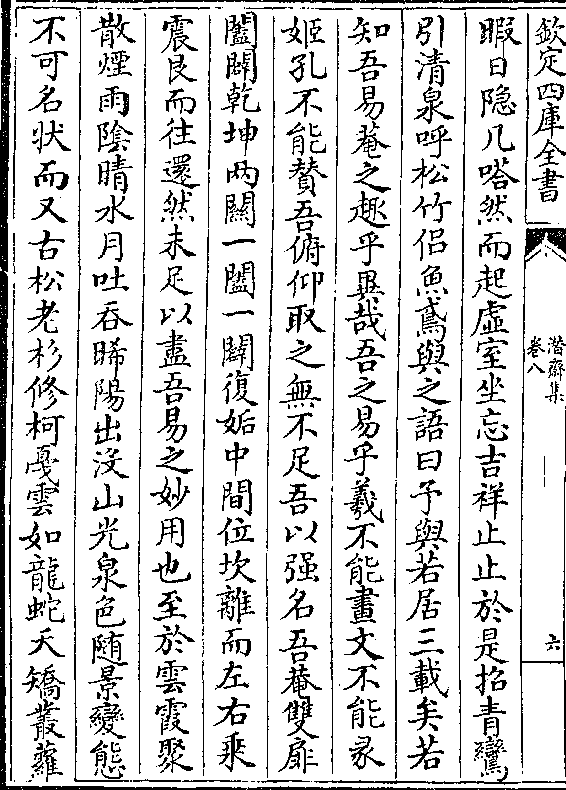 欽定四庫全書
潛齋集
卷八
六
暇日隐几嗒然而起虛室坐忘吉祥止止於是招青鸞
引清泉呼松竹侣魚鳶與之語曰予與若居三載矣若
知吾易菴之趣乎異哉吾之易乎羲不能畫文不能彖
姬孔不能賛吾俯仰取之無不足吾以强名吾菴雙扉
闔闢乾坤两闗一闔一闢復姤中間位坎離而左右乘
震艮而往還然未足以盡吾易之妙用也至於雲霞聚
散煙雨陰晴水月吐吞晞陽出沒山光泉色随景變態
不可名状而又古松老杉修柯戞雲如龍蛇夭矯叢蘿